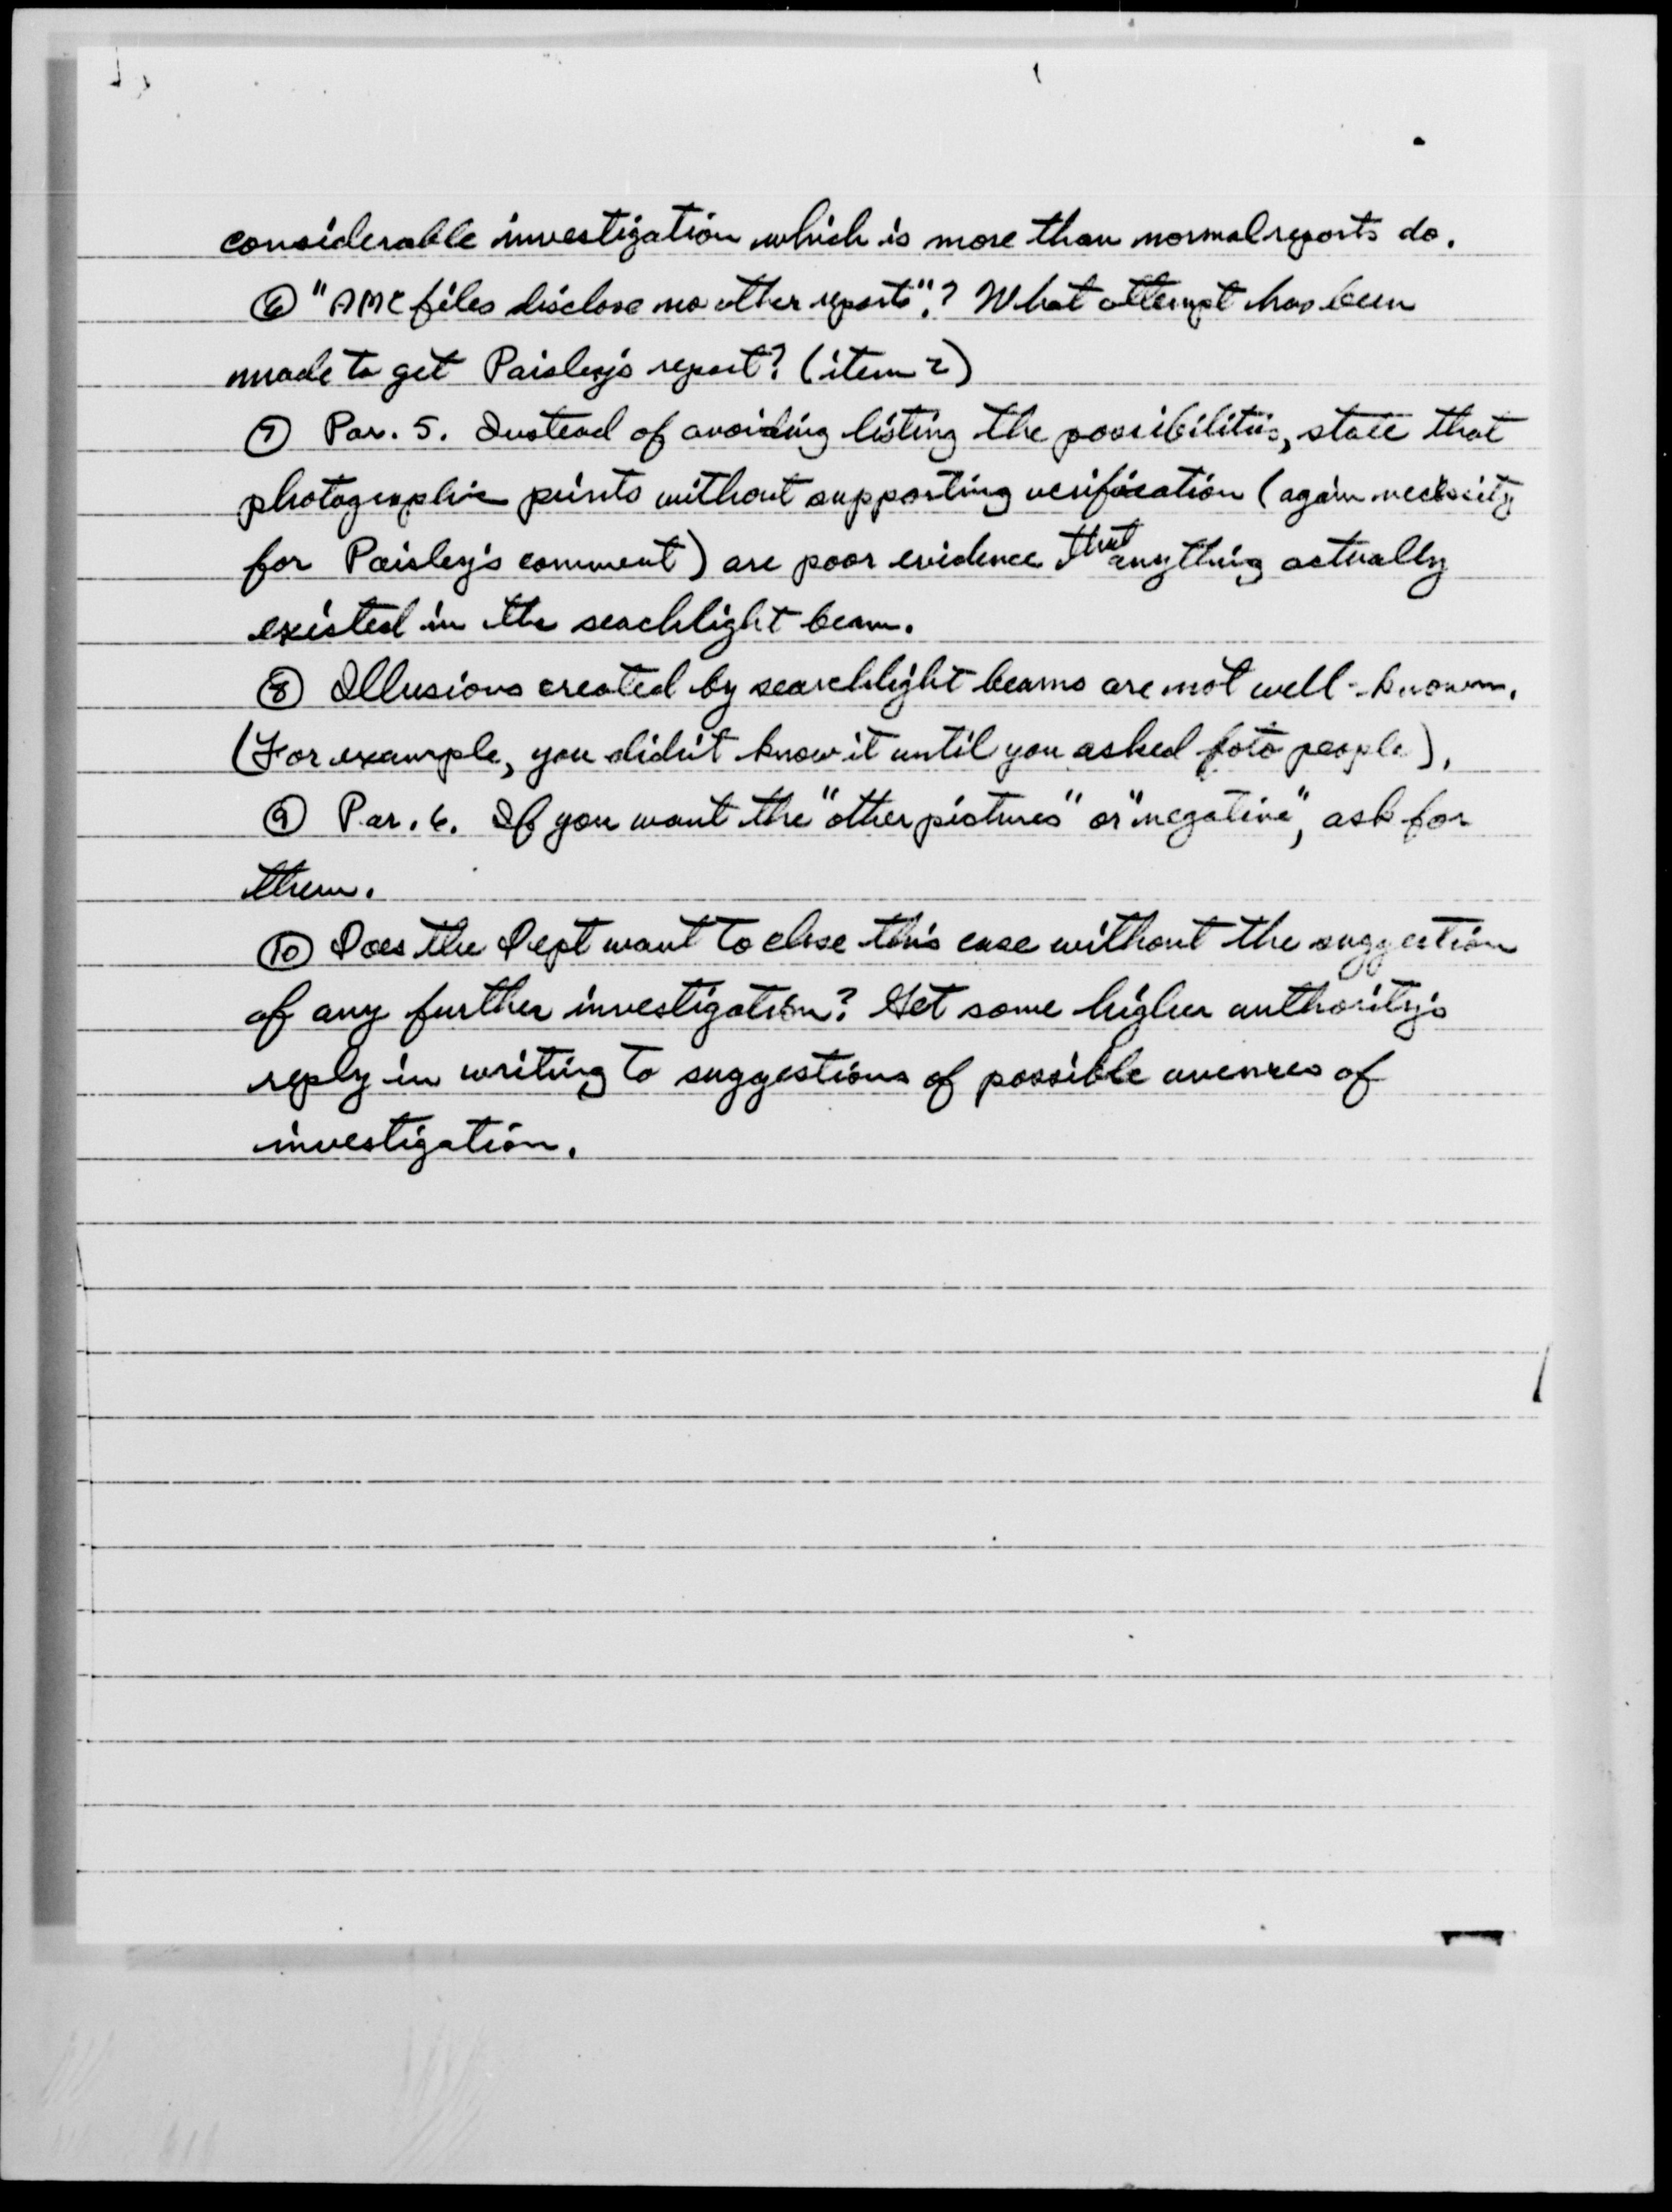 considerable investigation which is more than normal reports do.
⑥ "AMC files disclose no other reports"? What attempt has been
made to get Paisley's report? (item 2)
⑦ Par. 5. Instead of avoiding listing the possibilities, state that
photographic prints without supporting verification (again necessity
for Paisley's comment) are poor evidence that anything actually
existed in the seachlight beam.
⑧ Illusions created by searchlight beams are not well-known.
(For example, you didn't know it until you asked foto people).
⑨ Par. 6. If you want the "other pictures" or "negative", ask for
them.
⑩ Does the Dept want to close this case without the suggestion
of any further investigation? Get some higher authority's
reply in writing to suggestions of possible avenues of
investigation.